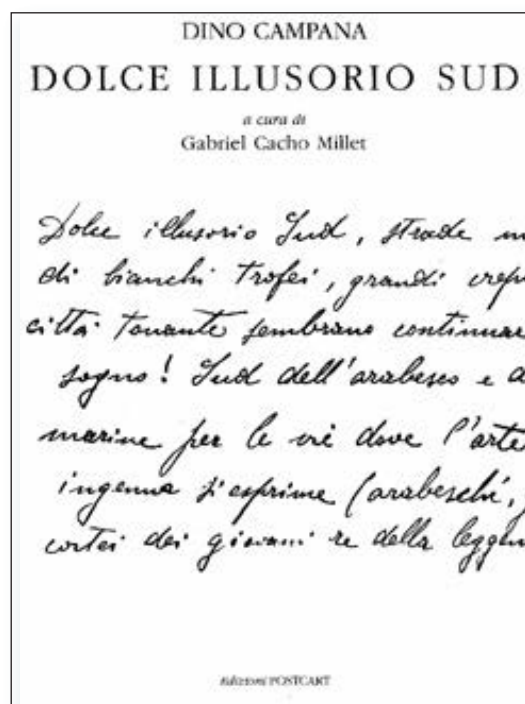 DINO CAMPANA
DOLCE ILLUSORIO SUD
a cura di
Gabriel Cacho Millet
Dolce illusorio Sud, strade
di bianchi trofei, grandi
città tonante sembrano continuar
sogno! Sud dell'arabesco e
marine per le vie dove l'arte
ingenua si esprime (arabeschi,
cortei dei giovani re della leggen
Edizioni POSTCART